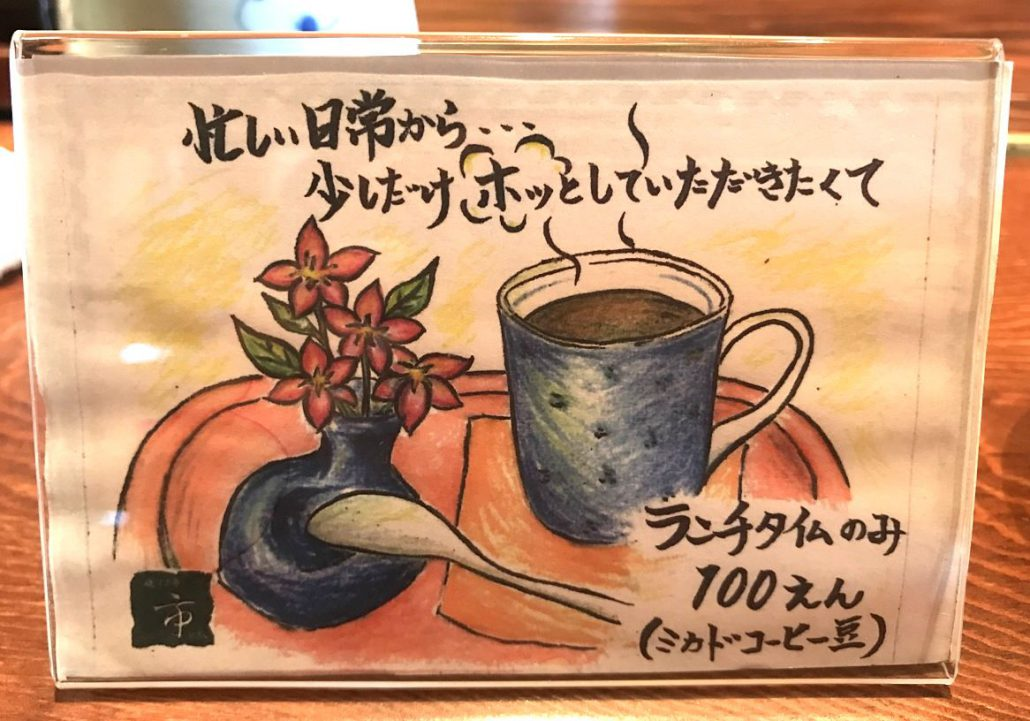 忙しい日常から...
少しだけホッとしていただきたくて
ランチタイムのみ
100えん
(ミカドコーヒー豆)
市